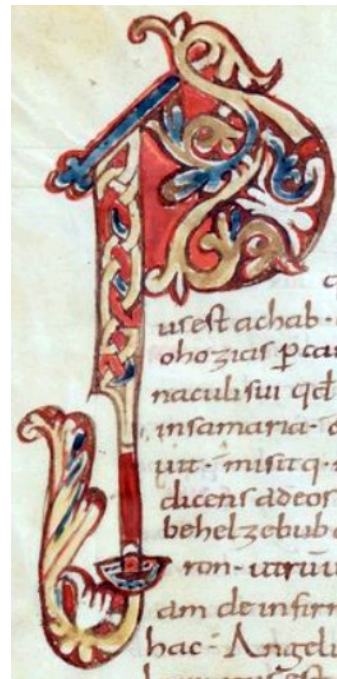 P
usest achab ·
ohozias p̄ can
naculi sui qd̄
insamaria ·
uit · misitq ·
dicens adeos
behelzebub
ron · utrū
am deinfir
hac · Angelu